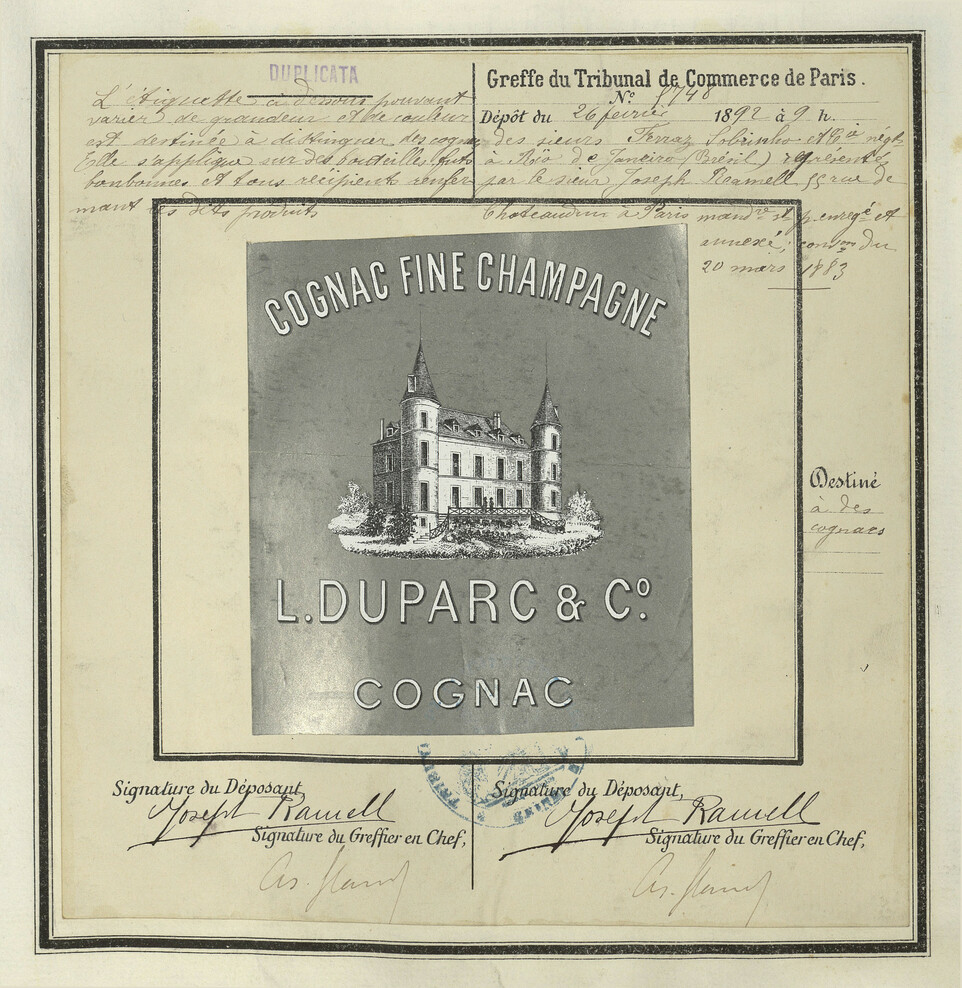 DUPLICATA
L'étiquette ci dessous pouvant
varier de grandeur et de couleur
est destinée à distinguer des cognacs
Elle s'applique sur des bouteilles, futs
bonbonnes et tous récipients renfer
mant les dits produits
Greffe du Tribunal de Commerce de Paris.
No 8748
Dépôt du 26 février 1892 à 9 h.
des sieurs Ferraz Sobrinho et Cie négts
à Rio de Janeiro (Brésil) représentés
par le sieur Joseph Ramell 55 rue de
Chateaudun à Paris mandre st p. enregé et
annexé; convon du
20 mars 1883
COGNAC FINE CHAMPAGNE
L. DUPARC & Co.
COGNAC
Destiné
à des
cognacs
Signature du Déposant,
Joseph Ramell
Signature du Greffier en Chef,
Signature du Déposant,
Joseph Ramell
Signature du Greffier en Chef,